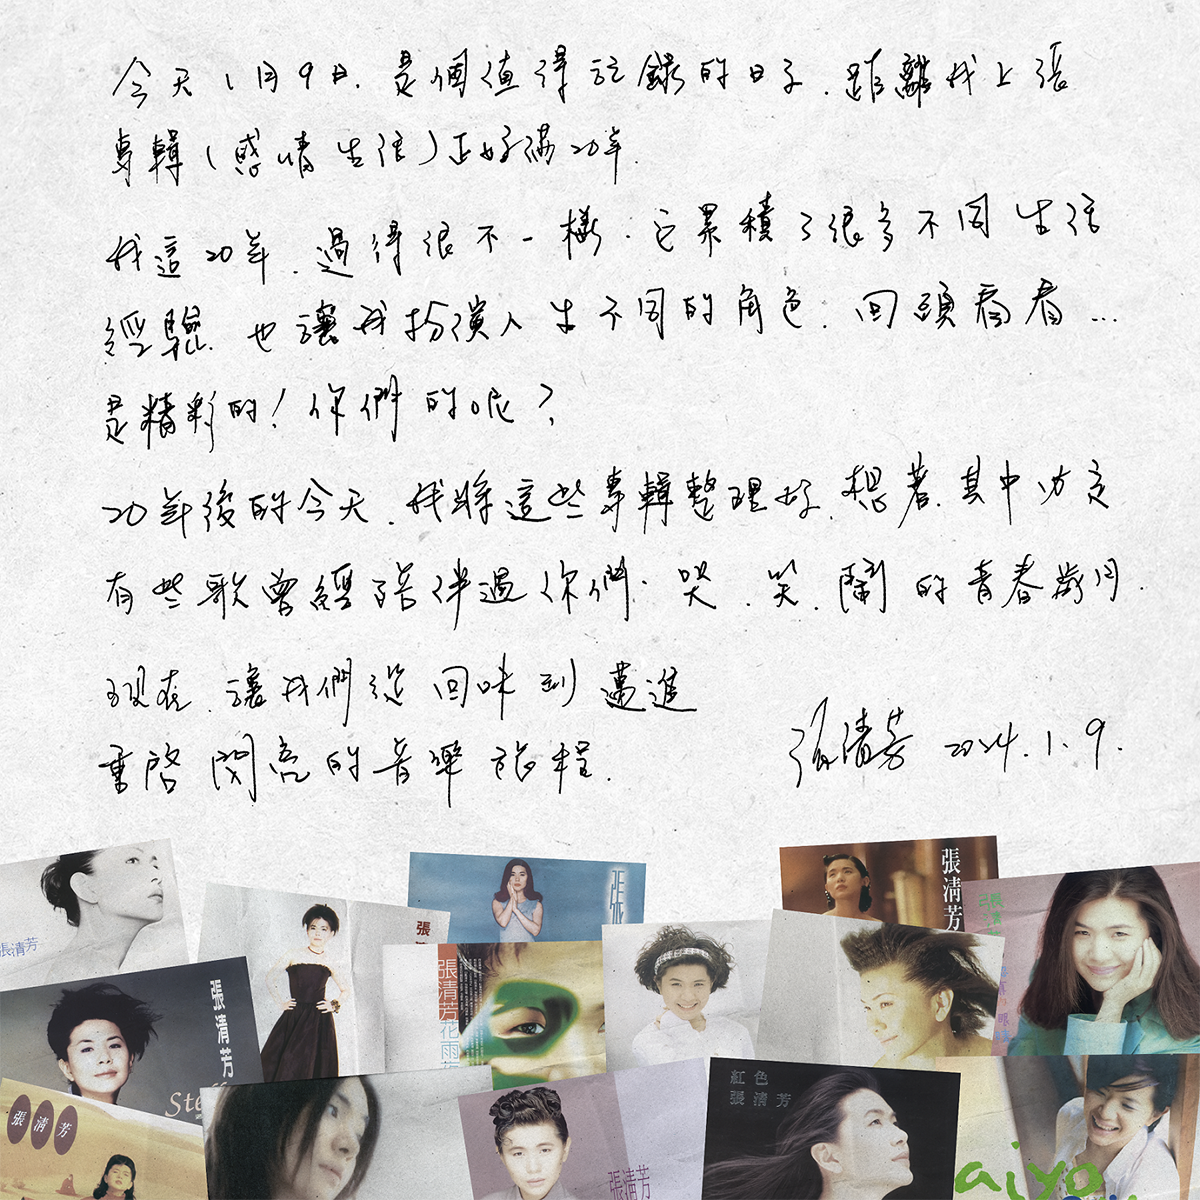 今天1月9日.是個值得記錄的日子.距離我上張
專輯(感情生活)正好滿20年.
我這20年.過得很不一樣.它累積了很多不同生活
經驗.也讓我扮演人生不同的角色.回頭看看...
是精彩的!你們的呢?
20年後的今天.我將這些專輯整理好.想著.其中必定
有些歌曾經陪伴過你們.哭.笑.鬧的青春歲月.
現在.讓我們從回味到邁進
重啓閃亮的音樂旅程.
張清芳 2024.1.9.
張清芳
張清芳
張清芳
張清芳
花雨
張清芳
張清芳
紅色
張清芳
張清芳
aiyo